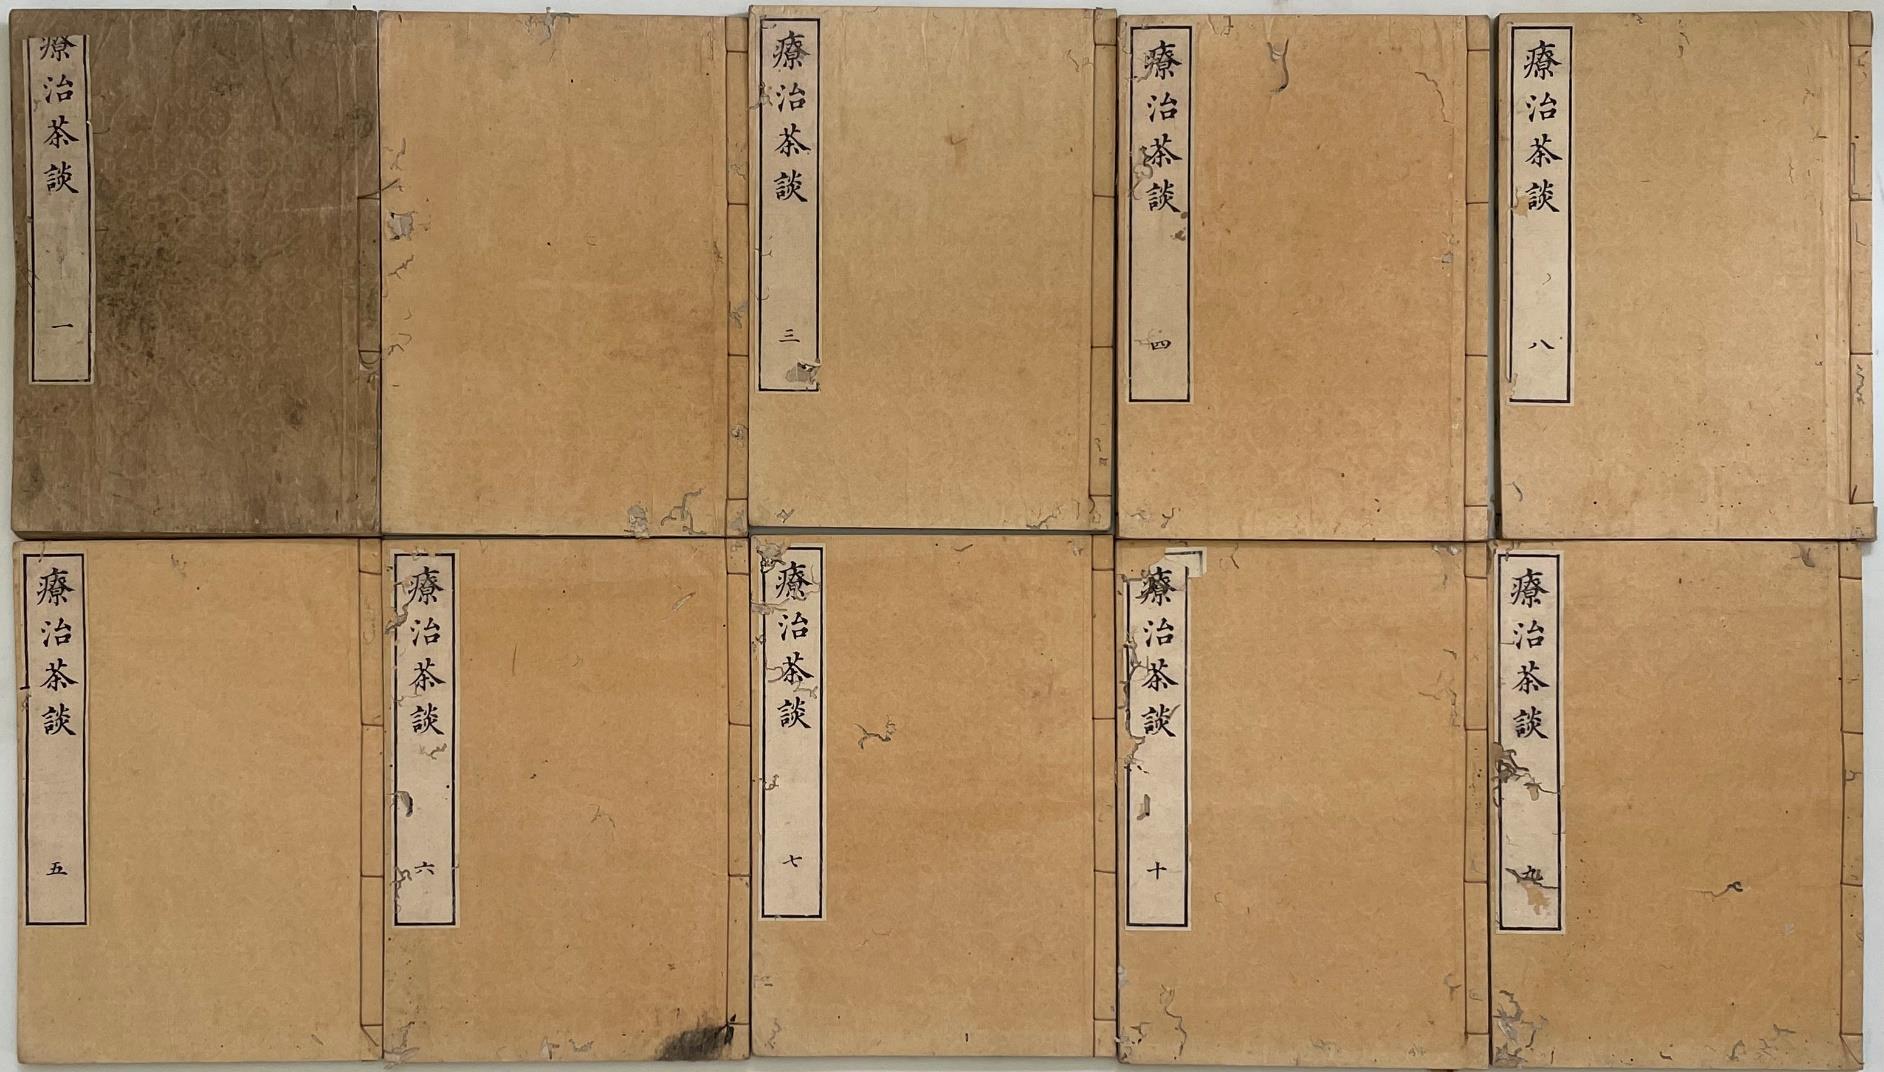 療治茶談 一
療治茶談 三
療治茶談 四
療治茶談 八
療治茶談 五
療治茶談 六
療治茶談 七
療治茶談 十
療治茶談 九